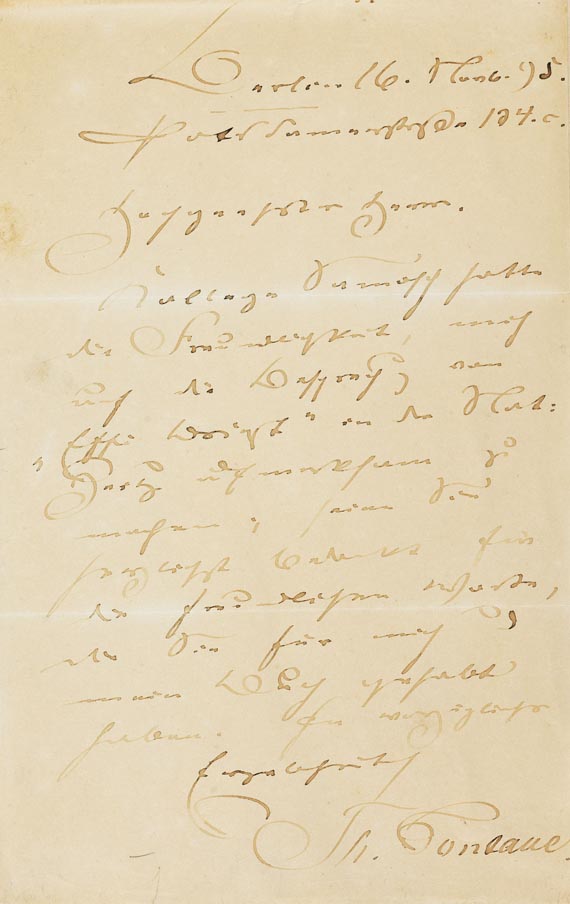 Berlin 16. Novb. 95.
Potsdamerstraße 134. c.
Hochgeehrter Herr.
College hatte
die Freundlichkeit, mich
auf die Besprechg von
„Effi Briest“ in der Nat:
Ztg aufmerksam zu
machen; seien Sie
herzlichst bedankt für
die freundlichen Worte,
die Sie für mich u.
mein Buch gehabt
haben. In vorzüglicher
Ergebenheit
Th. Fontane.